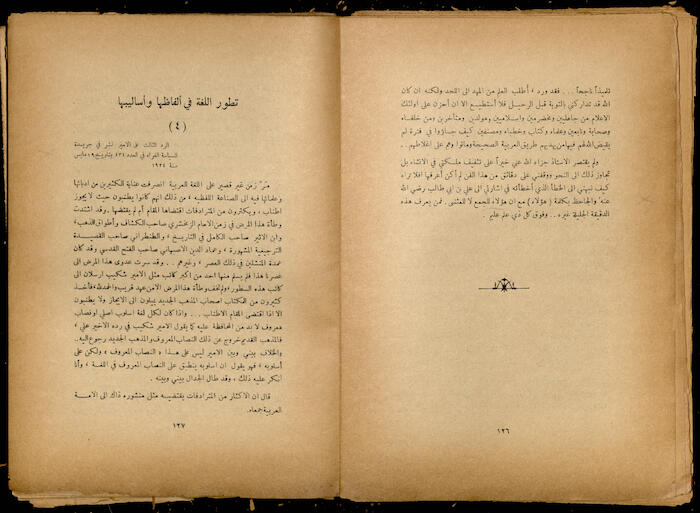 تلميذاً ناجحاً . . . فقد ورد « أطلب العلم من المهد الى اللحد ولكنه ان كان
الله قد تداركني بالتوبة قبل الرحيل فلا أستطيع الا ان أحزن على اولئك
الاعلام من جاهليين ومخضرمين واسلاميين ومولدين ومتأخرين ومن خلفاء
وصحابة وتابعين وعلماء وكتاب وخطباء ومصنفين كيف جاؤوا في فترة لم
يقيض الله لهم فيها من يهديهم طريق العربية الصحيحة وماتوا وهم على اغلاطهم . .
ولم يقتصر الاستاذ جزاه الله عني خيراً على تثقيف ملكتي في الانشاء بل
تجاوز ذلك الى النحو ووقفني على دقائق من هذا الفن لم أكن أعرفها فلا تراه
كيف نبهني الى الخطأ الذي أخطأته في اشارتي الى علي بن ابي طالب رضي الله
عنه والجاحظ بكلمة ( هؤلاء ) مع ان هؤلاء للجمع لا للمثنى . فمن يعرف هذه
الدقيقة الجليلة غيره . . وفوق كل ذي علم عليم .
١٢٦
تطور اللغة في ألفاظها وأساليبها
( ٤ )
الرد الثالث على الامير نشر في جريدة
السياسة الغراء في العدد ٤٣٤ بتاريخ ١٩ مارس
سنة ١٩٢٤
مرّ زمن غير قصير على اللغة العربية انصرفت عناية الكثيرين من ادبائها
وعلمائها فيه الى الصناعة اللفظية ، من ذلك انهم كانوا يطنبون حيث لا يجوز
اطناب ، ويكثرون من المترادفات اقتضاها المقام أم لم يقتضها . وقد اشتدت
وطأة هذا المرض في زمن الامام الزمخشري صاحب الكشاف وأطواق الذهب ،
وابن الاثير صاحب الكامل في التاريخ ، والطغرائي صاحب القصيدة
المشهورة ، وعماد الدين الاصبهاني صاحب الفتح القدسي وقد كان
عمدة المنشئين في ذلك العصر ، وغيرهم . . وقد سرت عدوى هذا المرض الى
عصرنا هذا فلم يسلم منها احد من اكبر كاتب مثل الامير شكيب ارسلان الى
كاتب هذه السطور ، ولم تخف وطأة هذا المرض الا من عهد قريب والحمد لله ، فأخذ
كثيرون من الكتاب اصحاب المذهب الجديد يميلون الى الايجاز ولا يطنبون
الا اذا اقتضى المقام الاطناب . . . واذا كان لكل لغة اسلوب اصلي او نصاب
معروف لا بد من المحافظة عليه كما يقول الامير شكيب في رده الاخير علي ،
فالمذهب القديم خروج عن ذلك النصاب المعروف والمذهب الجديد رجوع اليه .
والخلاف بيني وبين الامير ليس على هذا « النصاب المعروف » ولكن على
أسلوبه ، فهو يقول ان اسلوبه ينطبق على النصاب المعروف في اللغة ، وأنا
انكر عليه ذلك ، وقد طال الجدال بيني وبينه .
قال ان الاكثار من المترادفات يقتضيه مثل منشوره ذاك الى الامة
العربية جمعاء .
١٢٧